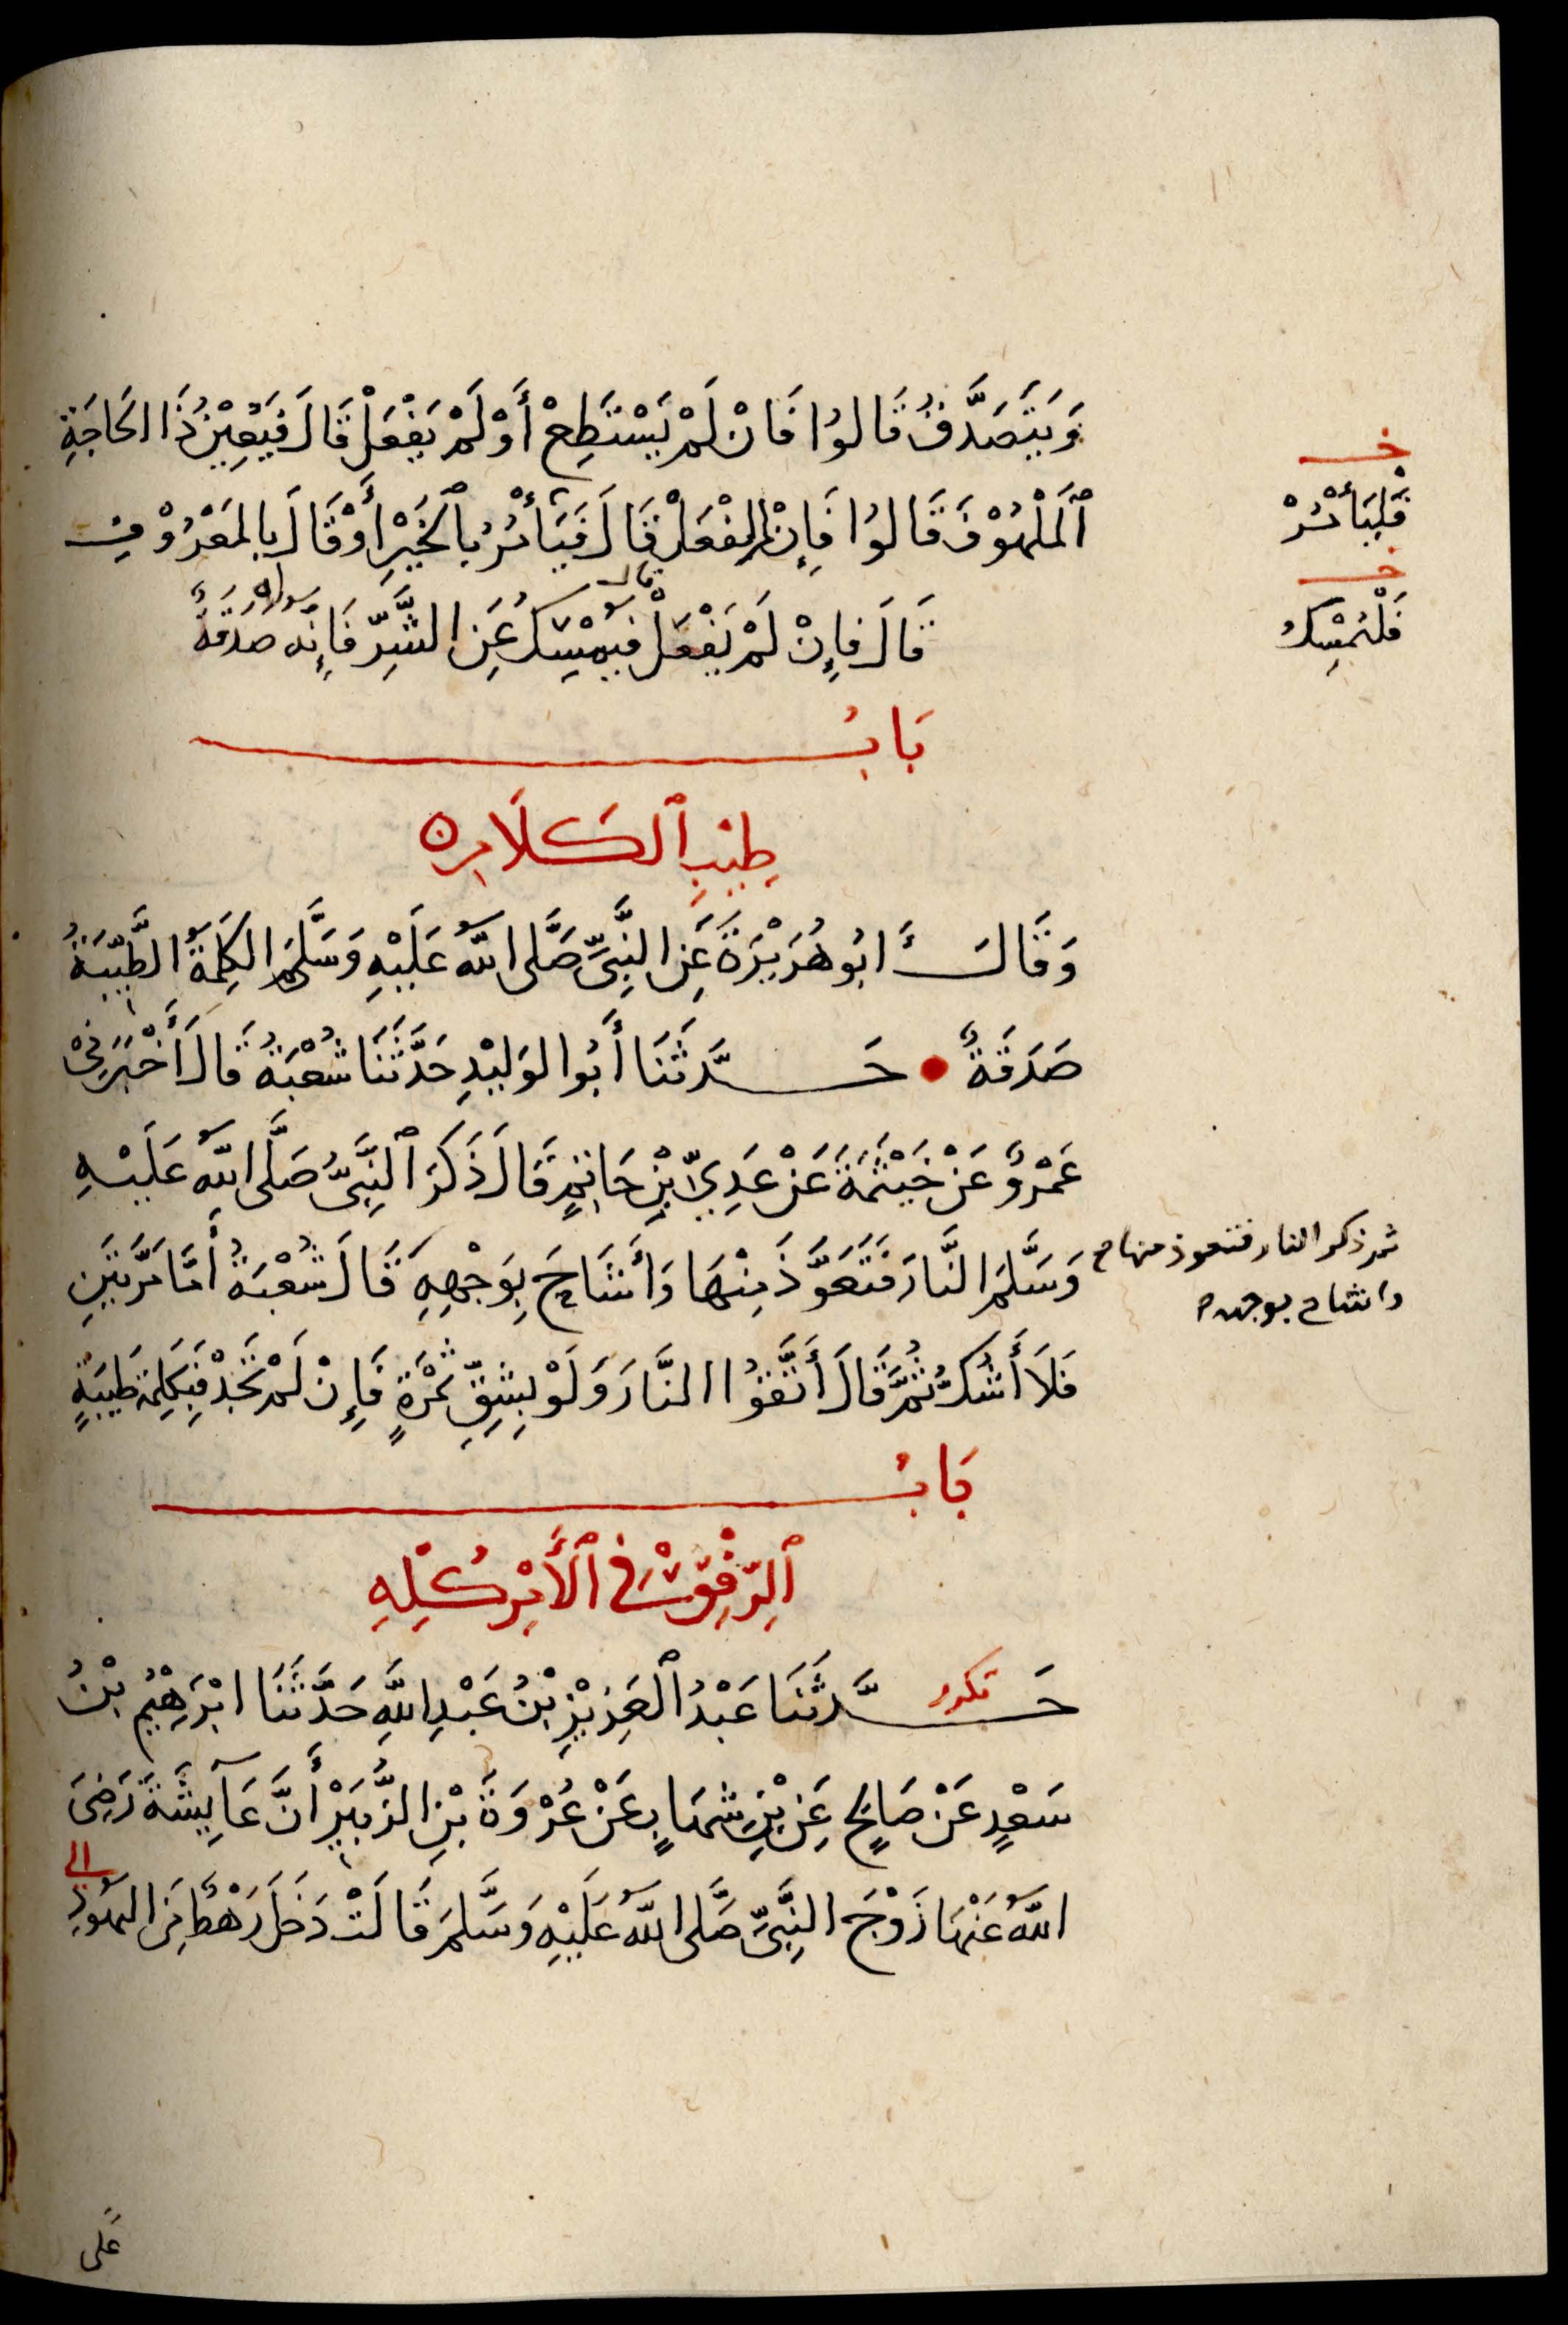 وَيَتَصَدَّقُ قَالُوا فَانْ لَمْ يَسْتَطِعْ أَوْ لَمْ يَفْعَلْ قَالَ فَيُعِيْنُ ذَا الحَاجَةِ
خ
ٱلمَلْهُوْفَ قَالُوا فَإِنْ لَمْ يَفْعَلْ قَالَ فَيَأمُرُ بِٱلخَيْرِ أَوْقَالَ بِالمَعْرُوْفِ
فَلْيَأمُرْ
قال
خ
قَالَ فَإِنْ لَمْ يَفْعَلْ فَيُمْسِكُ عَنِ الشَّرِّ فَإِنَّه صَدَقَةٌ
فَلْيُمْسِكْ
بَابُ
طِيْبِ ٱلكَلَامِ ه
وَقَالَ ابُو هُرَيْرَةَ عَنِ النَّبِىِّ صَلَّى اللهُ عَلَيْهِ وَسَلَّمَ الكَلِمَةُ الطَّيِّبَةُ
صَدَقَةٌ • حَدَّثَنَا أَبُوا الوَلِيْدِ حَدَّثَنَا شُعْبَةُ قَالَ أَخْبَرَنِىْ
عَمْرٌو عَنْ خَيْثَمَةَ عَنْ عَدِيِّ بْنِ حَاتِمٍ قَالَ ذَكَرَ ٱلنَّبِىُّ صَلَّى اللهُ عَلَيْهِ
وَسَلَّمَ النَّارَ فَتَعَوَّذَ مِنْهَا وَأَشَاحَ بِوَجْهِهِ قَالَ شُعْبَةُ أَمَّا مَرَّتَيْنِ
ثم ذكر النار فتعوذ منها
واشاح بوجهه
فَلَا أَشُكُّ ثُمَّ قَالَ أَتَّقُوا النَّارَ وَلَوْ بِشِقِّ تَمْرَةٍ فَإِنْ لَمْ تَجِدْ فَبِكَلِمَةٍ طَيِّبَةٍ
بَابُ
ٱلرِّفْقِ فِى ٱلأَمْرِ كُلِّهِ
تكرر
حَدَّثَنَا عَبْدُ ٱلعَزِيْزِ بْنُ عَبْدِ اللهِ حَدَّثَنَا ابْرَهِيْمُ بْنُ
سَعْدٍ عَنْ صَالِحٍ عَنِ بْنِ شِهَابٍ عَنْ عُرْوَةَ بْنِ الزُّبَيْرْ أَنَّ عَآيِشَةَ رَضِىَ
الى
اللهُ عَنْهَا زَوْجَ النَّبِىِّ صَلَّى اللهُ عَلَيْهِ وَسَلَّمَ قَالَتْ دَخَلَ رَهْطٌ مِنَ اليَهُوْدِ
عَلَى